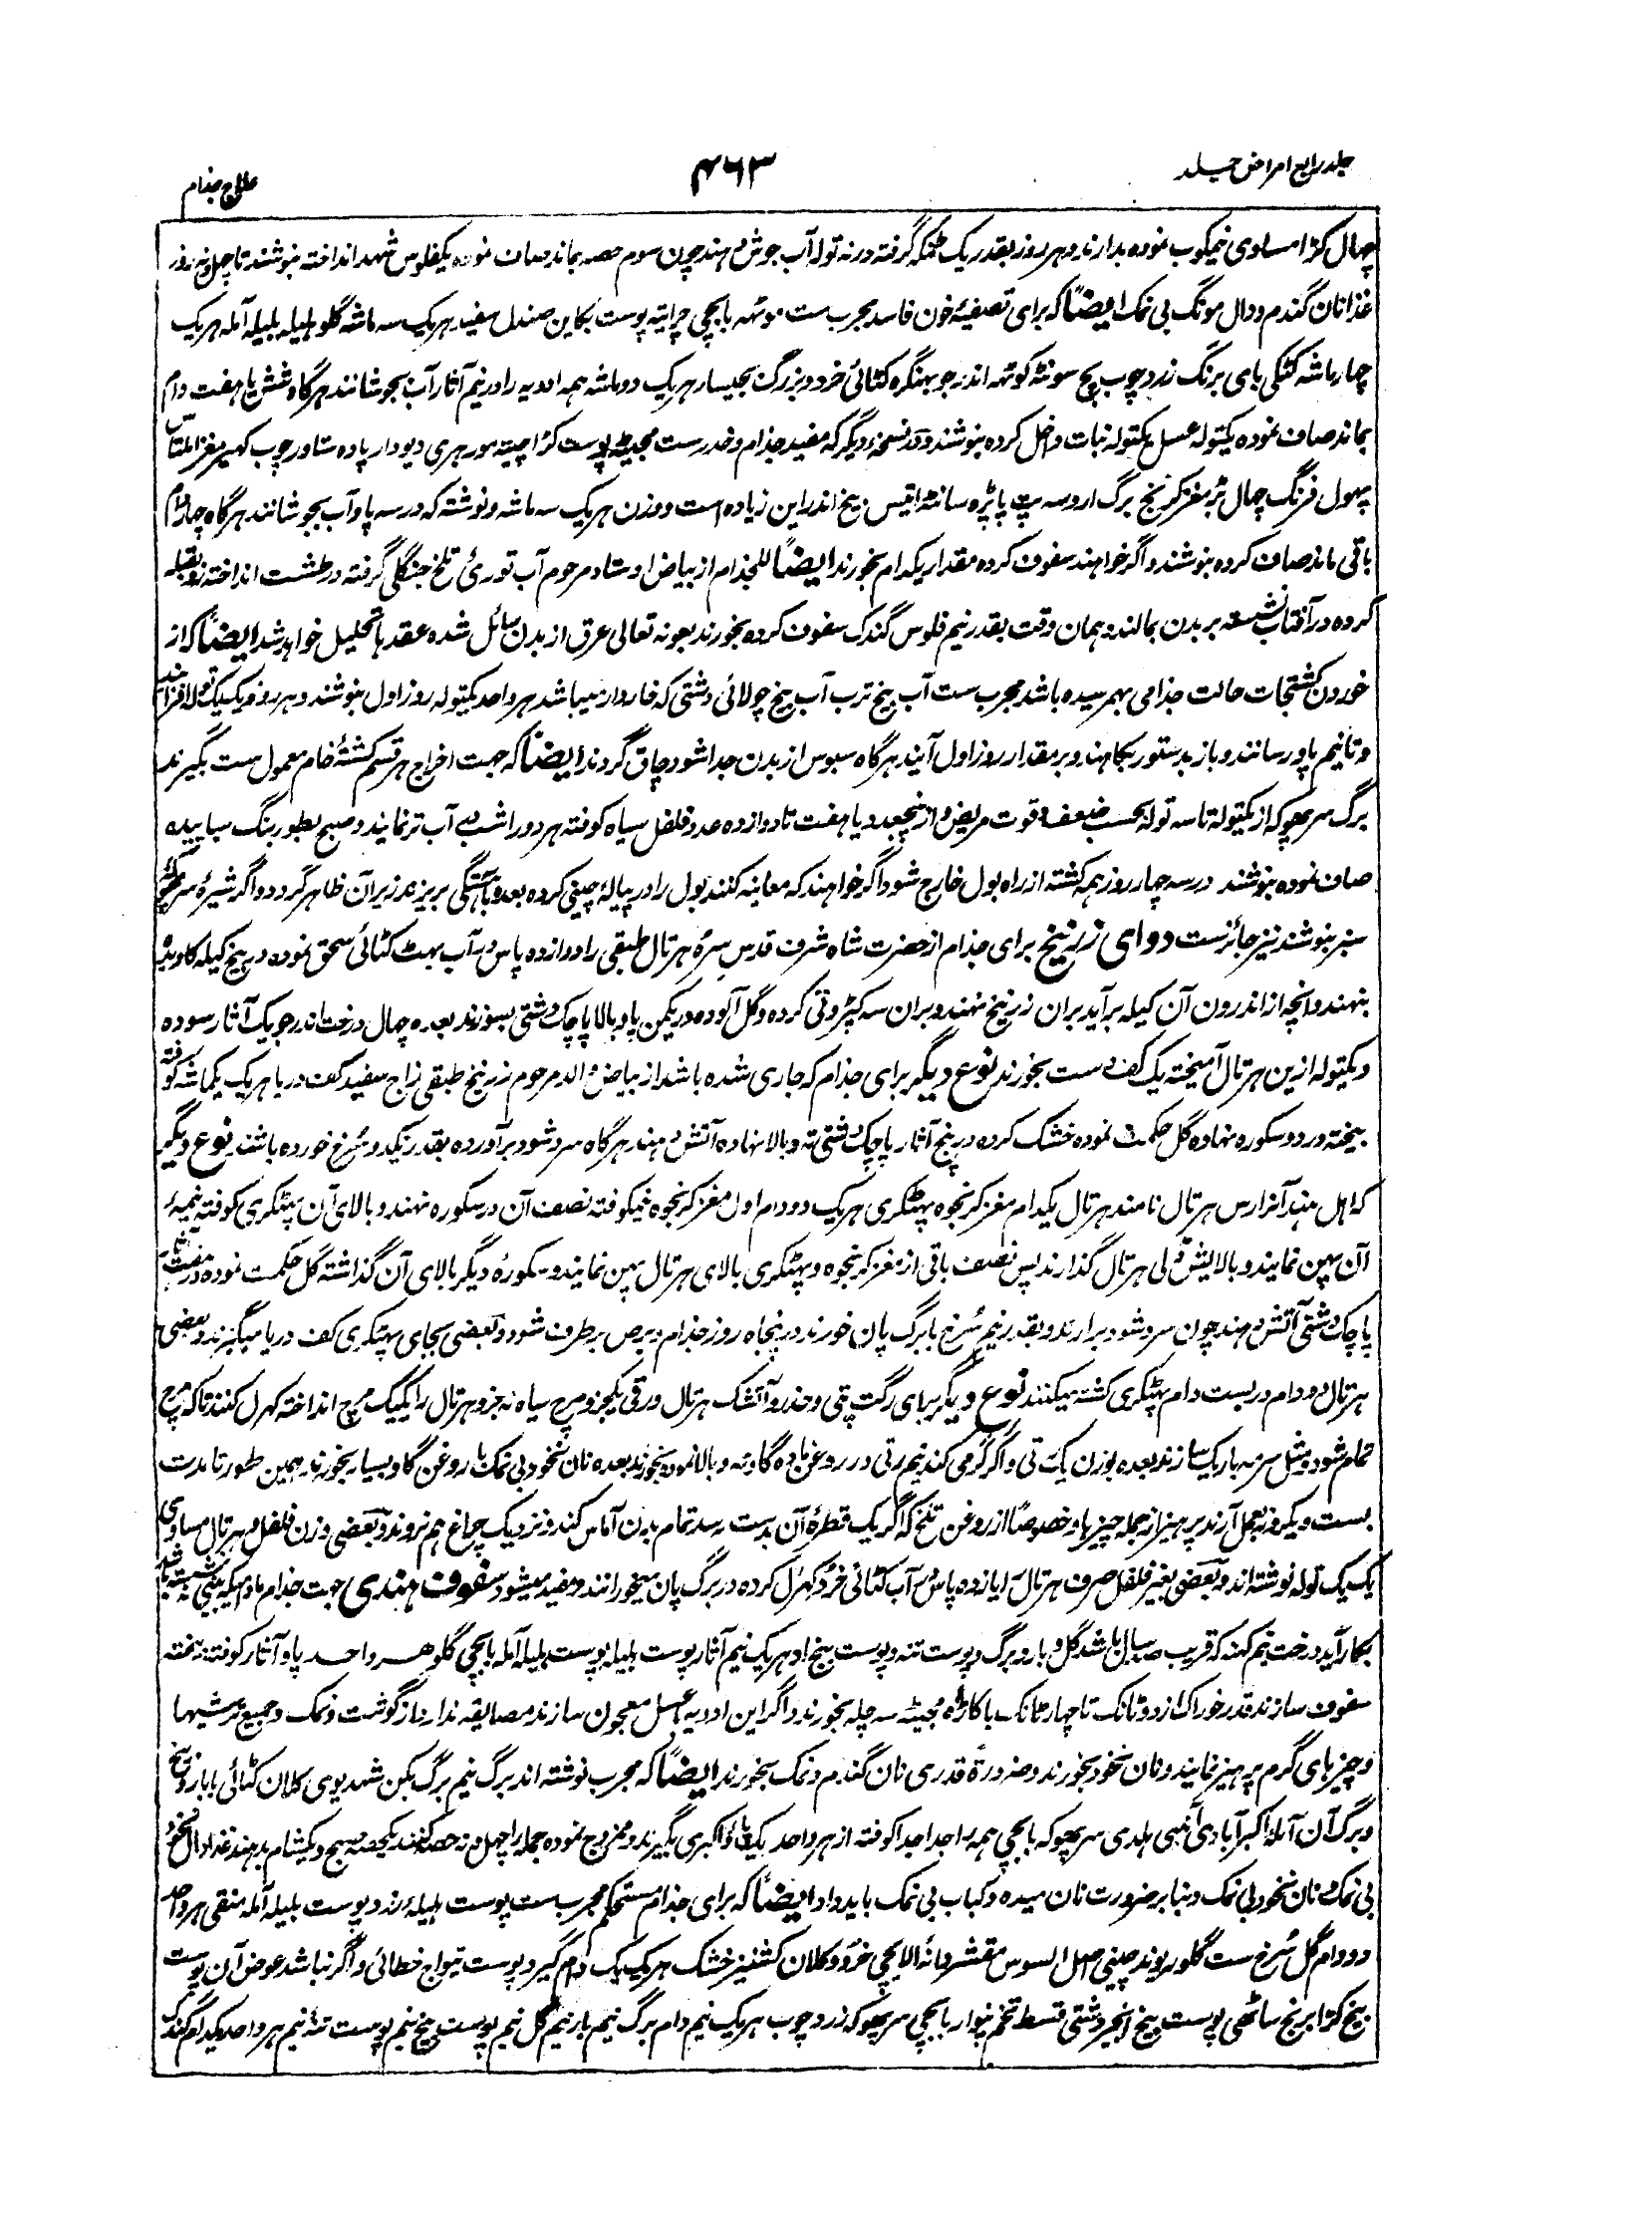 جلد رابع امراض جلد
۴۶۳
علاج جذام
چهال کژا مساوی نیمکوب نموده بدارند و هر روز بقدر یک ٹکه گرفته در نه توله آب جوش دهند چون سوم حصه بماند صاف نموده یکفلوس شهد انداخته بنوشند تا چهل و نه روز
غذا نان گندم و دال مونگ بی نمک ایضاً که برای تصفیهٔ خون فاسد مجرب ست موتهه بابچی چرایته پوست بکاین صندل سفید هریک سه ماشه گلو هلیله بلیله آمله هریک
چهار ماشه کٹکی بای برنگ زرد چوب بچ سونٹه کوٹهه اندرجو بهنگره کٹائی خرد و بزرگ بجیسار هریک دو ماشه همه ادویه را در نیم آثار آب بجوشانند هرگاه شش یا هفت دام
بماند صاف نموده یکتوله عسل یکتوله نبات داخل کرده بنوشند و در نسخهٔ دیگر که مفید جذام و خدر ست مجیٹه پوست کژا چیته مور بهری دیودار پاده ستاور چوب کهیر مغز املتاس
پهول فرنگ چهال بڑ مغز کرنج برگ اروسه پت پاپڑه سانٹه اتیس بیخ اندراین زیاده است و وزن هریک سه ماشه و نوشته که در سه پاو آب بجوشانند هرگاه چهار دام
باقی ماند صاف کرده بنوشند و اگر خواهند سفوف کرده مقدار یکدام بخورند ایضاً للجذام از بیاض اوستاد مرحوم آب توری تلخ جنگلی گرفته در طشت انداخته رو بقبله
کرده در آفتاب نشسته بر بدن بمالند و همان وقت بقدر نیم فلوس گندک سفوف کرده بخورند بعونه تعالی عرق از بدن سائل شده عقدها تحلیل خواهد شد ایضاً که از
خوردن کشتجات حالت جذامی بهمرسیده باشد مجرب ست آب بیخ ترب آب بیخ چولائی دشتی که خاردار میباشد هر واحد یکتوله روز اول بنوشند و هر روز یک یک توله افزایند
و تا نیم پاو رسانند و باز بدستور بکاهند و بر مقدار روز اول آیند هرگاه سبوس از بدن جدا شود چاق گردند ایضاً که جهت اخراج هر قسم کشتهٔ خام معمول ست بگیرند
برگ سرپهوکه از یکتوله تا سه توله بحسب ضعف و قوت مریض و از پنجعدد یا هفت تا دوازده عدد فلفل سیاه کوفته هر دو را شب در آب تر نمایند و صبح بطور بنگ ساییده
صاف نموده بنوشند در سه چهار روز همه کشته از راه بول خارج شود اگر خواهند که معاینه کنند بول را در پیالهٔ چینی کرده بعده بآهنگی بریزند زیر آن ظاهر گردد و اگر شیرهٔ سرپهوکه
سبز بنوشند نیز جائز ست دوای زرنیخ برای جذام از حضرت شاه شرف قدس سره هرتال طبقی را دوازده پاس در آب بهٹ کٹائی سحق نموده در بیخ کیله کاویده
بنهند و انچه از اندرون آن کیله برآید بران زرنیخ نهند و بران سه کپڑوٹی کرده و گل آلوده در یکمن پاو بالا پاچک دشتی بسوزند بعده چهال درخت اندرجو یک آثار سوده
و یکتوله ازین هرتال آمیخته یک کف دست بخورند نوع دیگر برای جذام که جاری شده باشد از بیاض والد مرحوم زرنیخ طبقی زاج سفید کف دریا هریک یکماشه کوفته
بیخته در دو سکوره نهاده گل حکمت نموده خشک کرده در پنج آثار پاچک دشتی ته و بالا نهاده آتش دهند هرگاه سرد شود برآورده بقدر یکدو سرخ خورده باشند نوع دیگر
که اهل هند آنرا رس هرتال نامند هرتال یکدام مغز کرنجوه پهٹکری هریک دو دام اول مغز کرنجوه نیمکوفته نصف آن در سکوره نهند و بالای آن پهٹکری کوفته نیمهٔ
آن پهن نمایند و بالایش ڈلی هرتال گذارند پس نصف باقی از مغز کرنجوه و پهٹکری بالای هرتال پهن نمایند و سکورهٔ دیگر بالای آن گذاشته گل حکمت نموده در هفت
پاچک دشتی آتش دهند چون سرد شود برارند و بقدر نیم سرخ با برگ پان خورند در پنجاه روز جذام و برص برطرف شود و بعضی بجای پهٹکری کف دریا میگیرند و بعضی
هرتال دو دام در بست دام پهٹکری کشته میکنند نوع دیگر برای رگت پتی و خدر و آتشک هرتال ورقی یکجزو مرچ سیاه نه جزو هرتال را یک یک مرچ انداخته کهرل کنند تا که مرچ
تمام شود و مثل سرمه باریک سازند بعده بوزن یک رتی و اگر گرمی کند نیم رتی در روغن ماده گاو ته و بالا نموده بخورند بعده نان نخود بی نمک با روغن گاو بسیار بخورند بهمین طور تا مدت
بست و یکروز بعمل آرند پرهیز از جمله چیزها و خصوصاً از روغن تلخ که اگر یک قطرهٔ آن بدست رسد تمام بدن آماس کند و نزدیک چراغ هم نروند و بعضی وزن فلفل و هرتال مساوی
یک یک توله نوشته اند و بعضی بغیر فلفل صرف هرتال را یازده پاس در آب کٹائی خرد کهرل کرده در برگ پان میخورانند و مفید میشود سفوف هندی جهت جذام مادامیکه بینی نه نشسته باشد
بکار آید درخت نیم کهنه که قریب صد سال باشد گل و بار و برگ و پوست تنه و پوست بیخ او هریک نیم آثار پوست هلیله پوست بلیله آمله بابچی گلو هر واحد پاو آثار کوفته بیخته
سفوف سازند قدر خوراک از دو ٹانک تا چهار ٹانک با کاڑهٔ مجیٹه سه چله بخورند و اگر این ادویه بعسل معجون سازند مضایقه ندارد از گوشت و نمک و جمیع ترشیها
و چیزهای گرم پرهیز نمایند و نان نخود بخورند و ضرورةً قدری نان گندم و نمک بخورند ایضاً که مجرب نوشته اند برگ نیم برگ بکن شهدیوی کلان کٹائی با بار و بیخ
و برگ آن آملهٔ اکبرآبادی آنبی هلدی سرپهوکه بابچی همه را جدا جدا کوفته از هر واحد یک پاو اکبری بگیرند و ممزوج نموده جمله را چهل و نه حصه کنند یکحصه صبح و یکی شام بدهند غذا دال نخود
بی نمک و نان نخود بی نمک و بنابر ضرورت نان میده و کباب بی نمک باید داد ایضاً که برای جذام مستحکم مجرب ست پوست هلیلهٔ زرد پوست بلیله آمله منقی هر واحد
دو دام گل سرخ ست گلو ریوند چینی اصل السوس مقشر دانهٔ الایچی خرد و کلان کشنیز خشک هریک یک دام گیرد پوست تیواج خطائی و اگر نباشد عوض آن پوست
بیخ کژا برنج ساٹهی پوست بیخ انجیر دشتی قسط تخم پنوار بابچی سرپهوکه زرد چوب هریک نیم دام برگ نیم بار نیم گل نیم پوست بیخ نیم پوست تنهٔ نیم هر واحد یکدام گندک